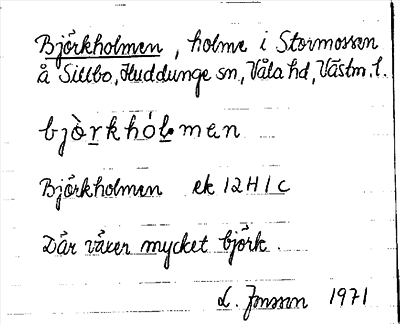 Björkholmen, holme i Stormossen
å Sillbo, Huddunge sn, Våla hd, Västm. l.
bjò̀rkhól̥men
Björkholmen ek 12H1c
Där växer mycket björk.
L. Jonsson 1971